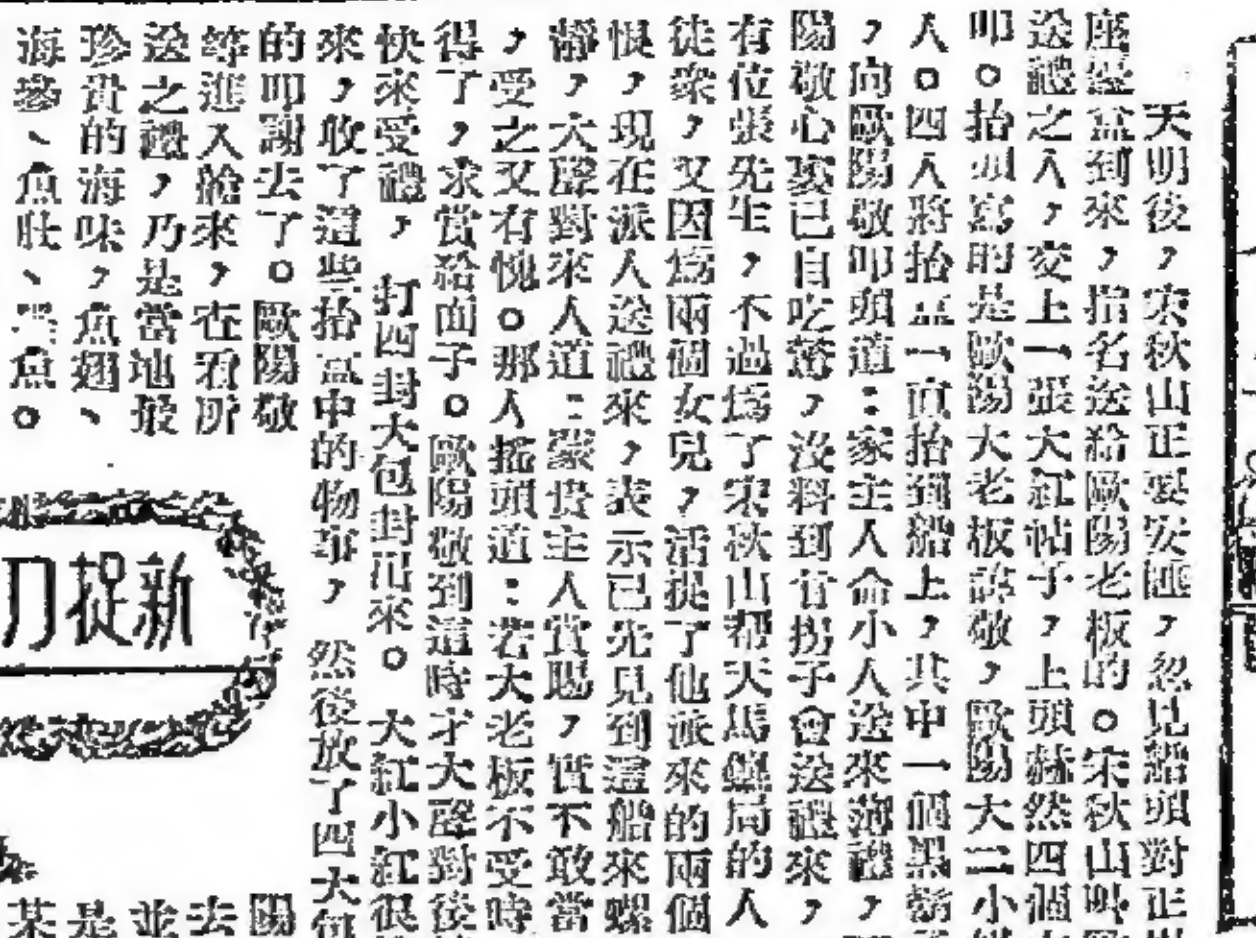 天明後，宋秋山正要安睡，忽見船頭對正
座擡盒到來，指名送給歐陽老板的。宋秋山
送禮之人，交上一張大紅帖子，上頭赫然四個
叩。抬頭寫的是歐陽大老板許敬，歐陽大二小
人。四人將抬盒一直抬到船上，其中一個黑
，向歐陽敬叩頭道：家主人命小人送來薄禮，
陽敬心裏已自吃驚，沒料到官拐子會送禮來，
有位張先生，不過爲了宋秋山帮天馬鏢局的人
徒衆，又因爲兩個女兒，活捉了他派來的兩個
恨，現在派人送禮來，表示已先見到這船來
靜，大聲對來人道：蒙貴主人賞賜，實不敢當
，受之又有愧。那人搖頭道：若大老板不受時
得了，求賞給面子。歐陽敬到這時才大聲對後
快來受禮，打四封大包封用來。大紅小紅很
來，收了這些抬盒中的物事，然後放了四大包
的叩謝去了。歐陽敬
等進入艙來，在看所
送之禮，乃是當地最
珍貴的海味，魚翅、
海參、魚肚、墨魚。
新捉刀
陽
去
並
是
某